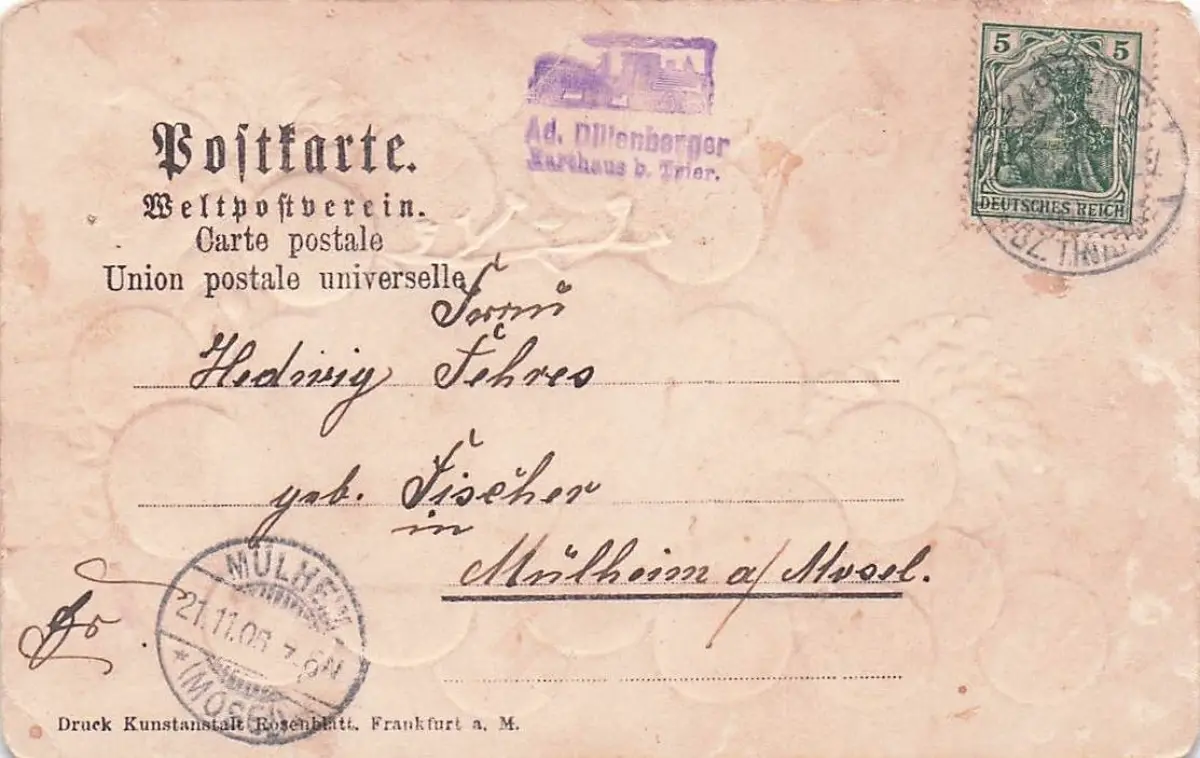 Postkarte.
Weltpostverein.
Carte postale
Union postale universelle
Ad. Dillenberger
Karthaus b. Trier.
5 5
DEUTSCHES REICH
BZ. TRIER
Frau
Hedwig Fehres
geb. Fischer
in
Mülheim a/Mosel.
MÜLHEIM
21.11.06
(MOSEL)
Druck Kunstanstalt Rosenblatt. Frankfurt a. M.